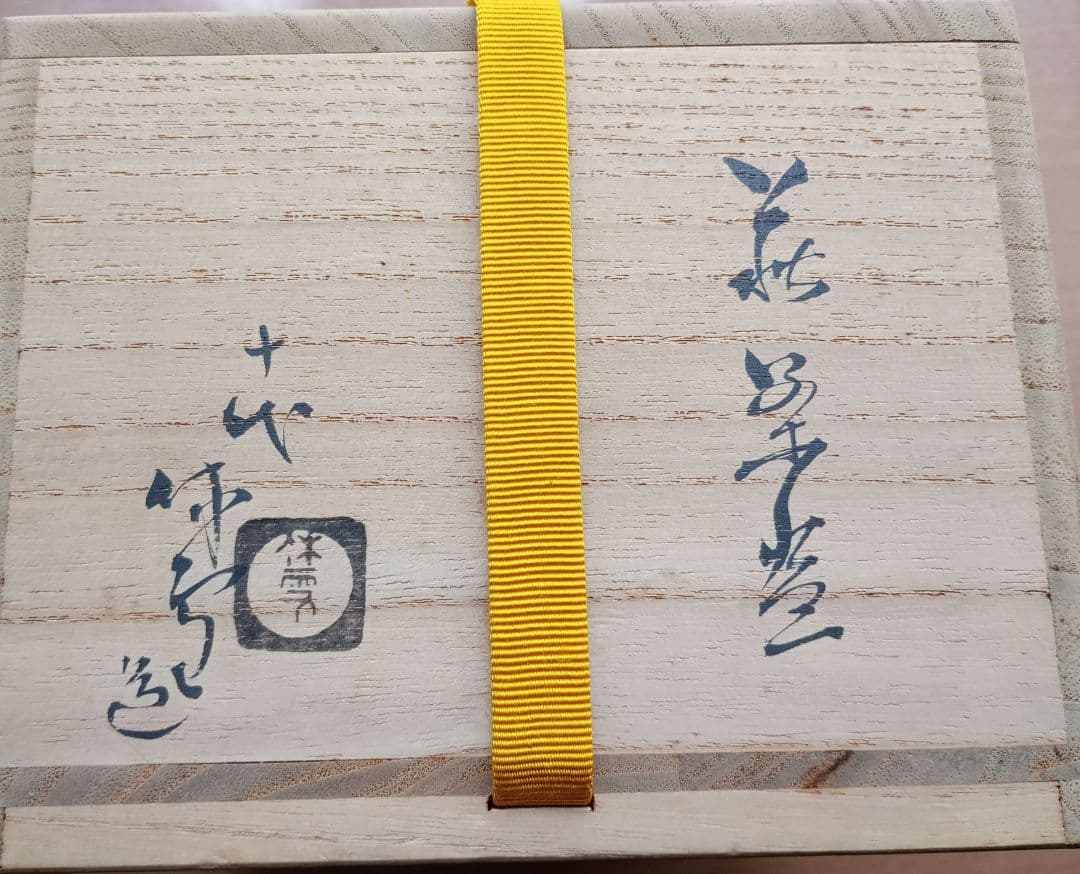 萩
十代
休雪造
休雪